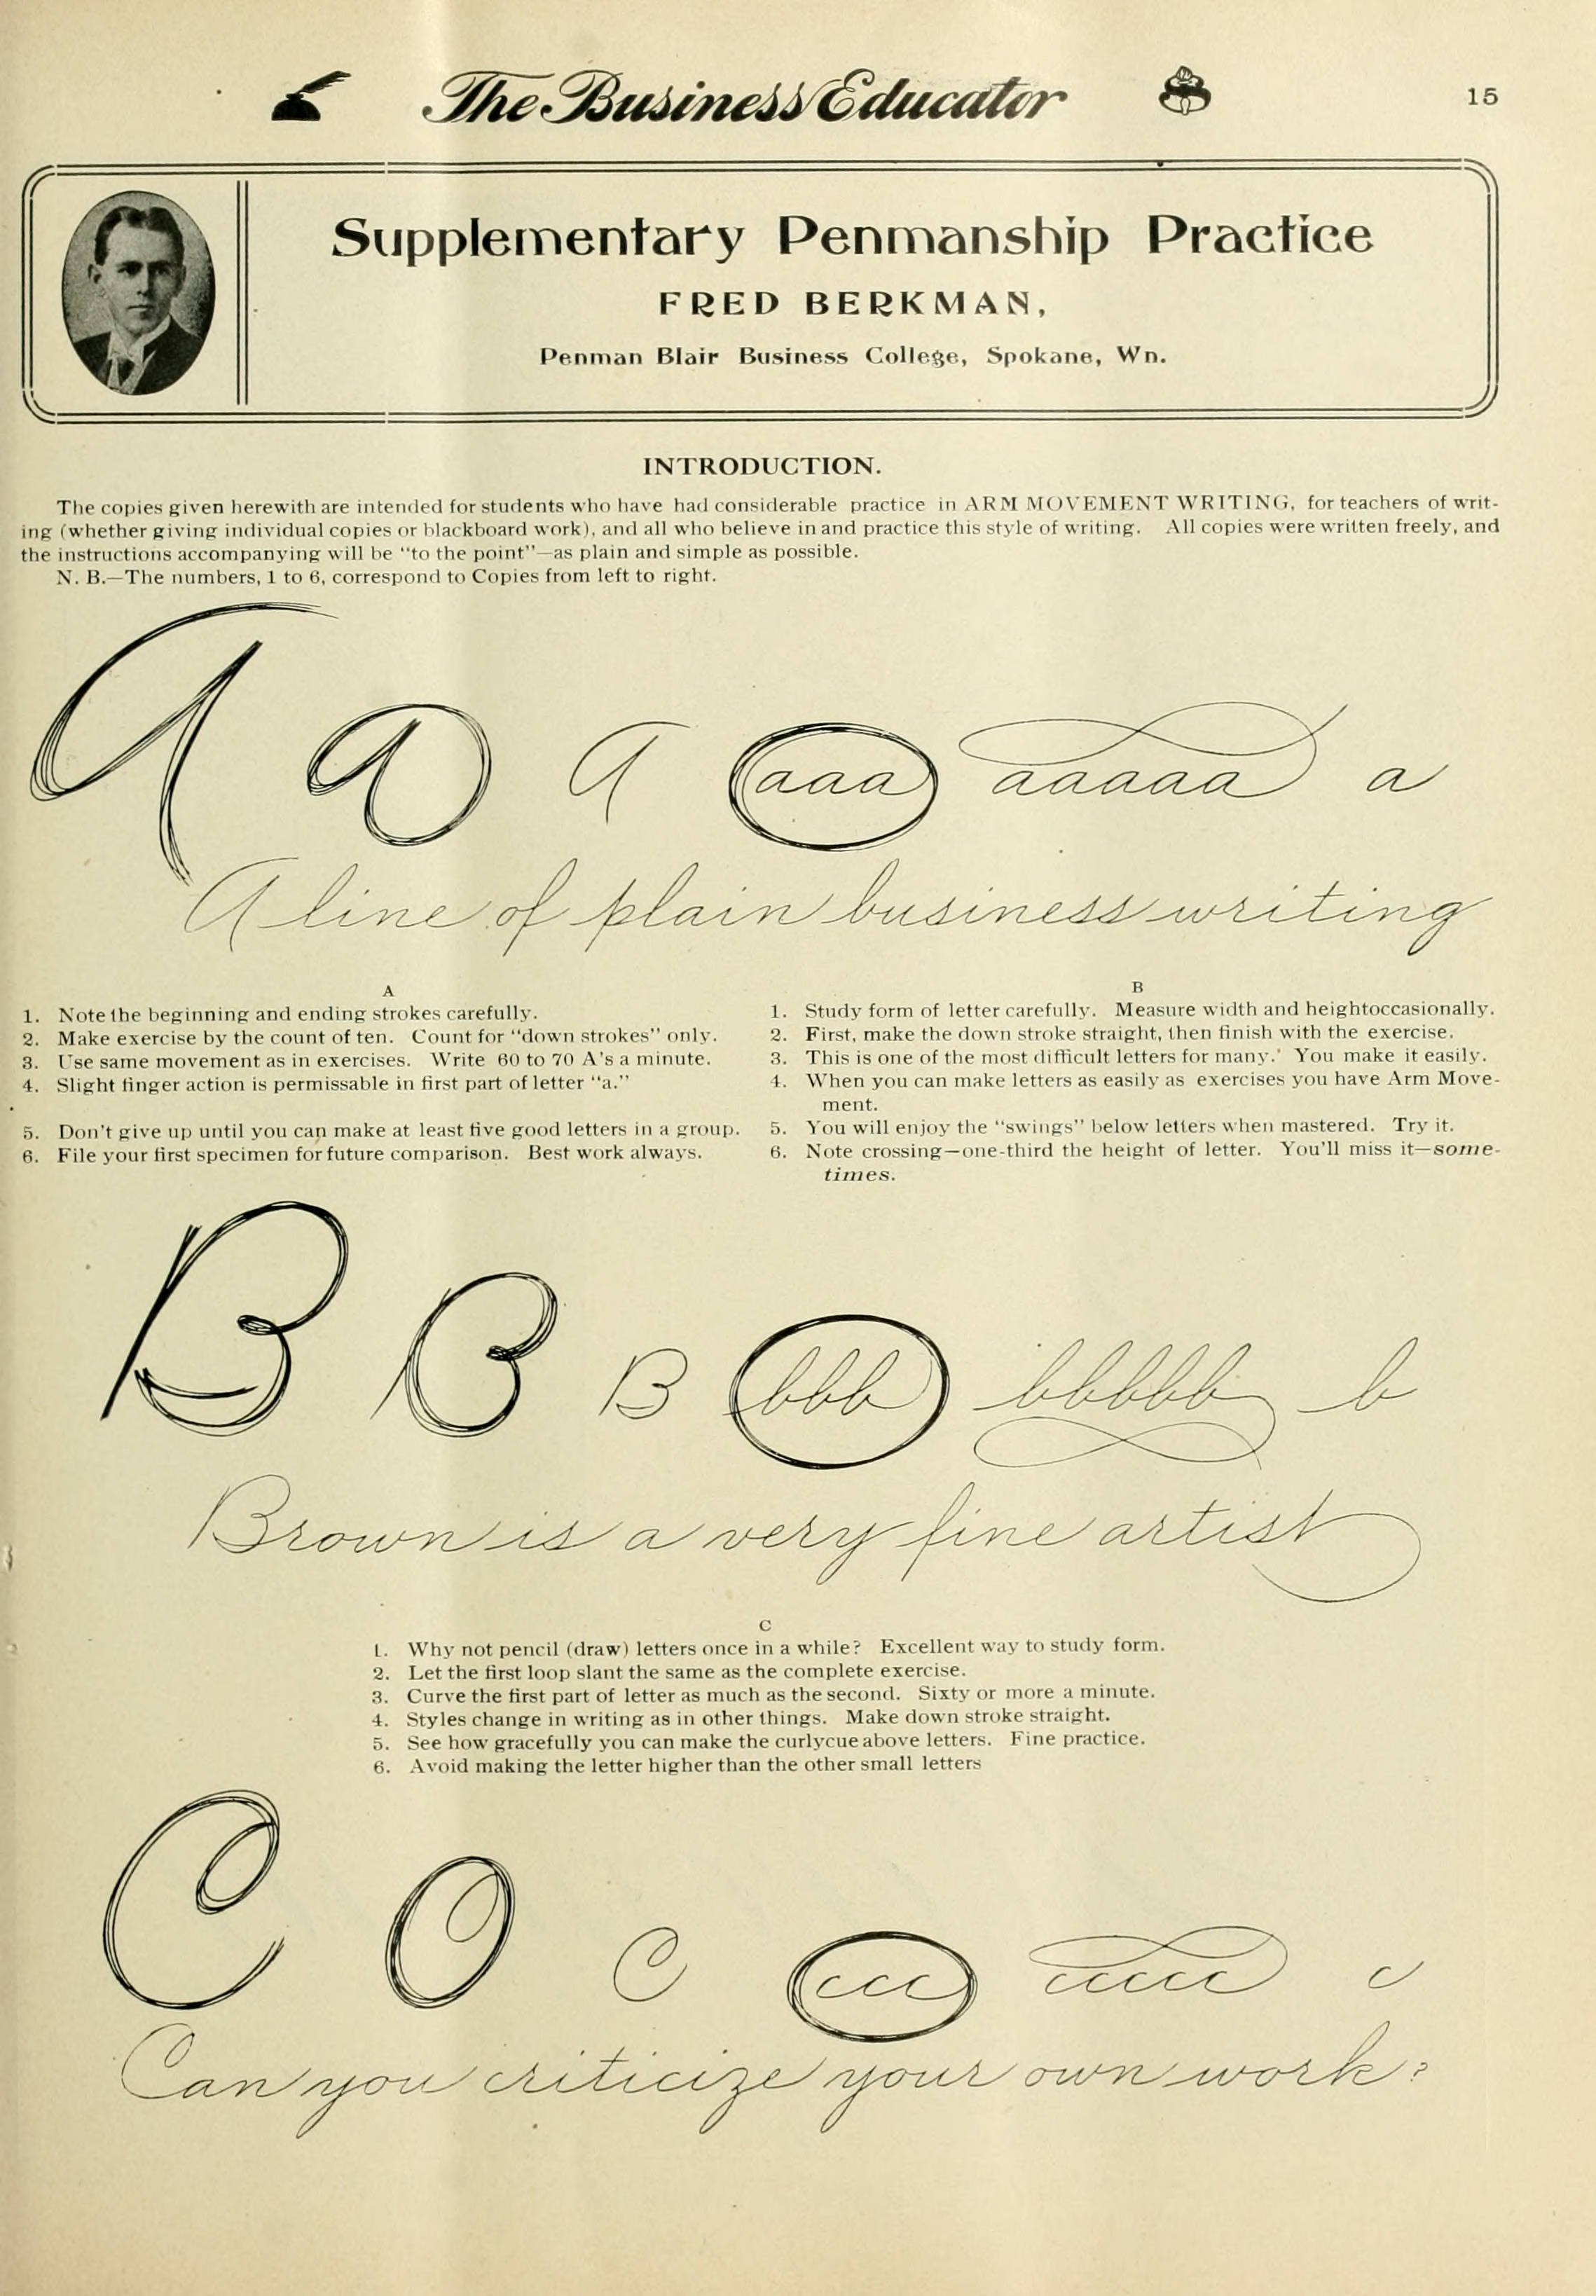 The Business Educator
15
Supplementary Penmanship Practice
FRED BERKMAN,
Penman Blair Business College, Spokane, Wn.
INTRODUCTION.
The copies given herewith are intended for students who have had considerable practice in ARM MOVEMENT WRITING, for teachers of writ-
ing (whether giving individual copies or blackboard work), and all who believe in and practice this style of writing. All copies were written freely, and
the instructions accompanying will be "to the point"—as plain and simple as possible.
N. B.—The numbers, 1 to 6, correspond to Copies from left to right.
A a A aaa aaaaa a
A line of plain business writing
A
1. Note the beginning and ending strokes carefully.
2. Make exercise by the count of ten. Count for "down strokes" only.
3. Use same movement as in exercises. Write 60 to 70 A's a minute.
4. Slight finger action is permissable in first part of letter "a."
5. Don't give up until you can make at least five good letters in a group.
6. File your first specimen for future comparison. Best work always.
B
1. Study form of letter carefully. Measure width and heightoccasionally.
2. First, make the down stroke straight, then finish with the exercise.
3. This is one of the most difficult letters for many. You make it easily.
4. When you can make letters as easily as exercises you have Arm Move-
ment.
5. You will enjoy the "swings" below letters when mastered. Try it.
6. Note crossing—one-third the height of letter. You'll miss it—some-
times.
B B B bbb bbbbb b
Brown is a very fine artist
C
1. Why not pencil (draw) letters once in a while? Excellent way to study form.
2. Let the first loop slant the same as the complete exercise.
3. Curve the first part of letter as much as the second. Sixty or more a minute.
4. Styles change in writing as in other things. Make down stroke straight.
5. See how gracefully you can make the curlycue above letters. Fine practice.
6. Avoid making the letter higher than the other small letters
C O C ccc ccccc c
Can you criticize your own work?